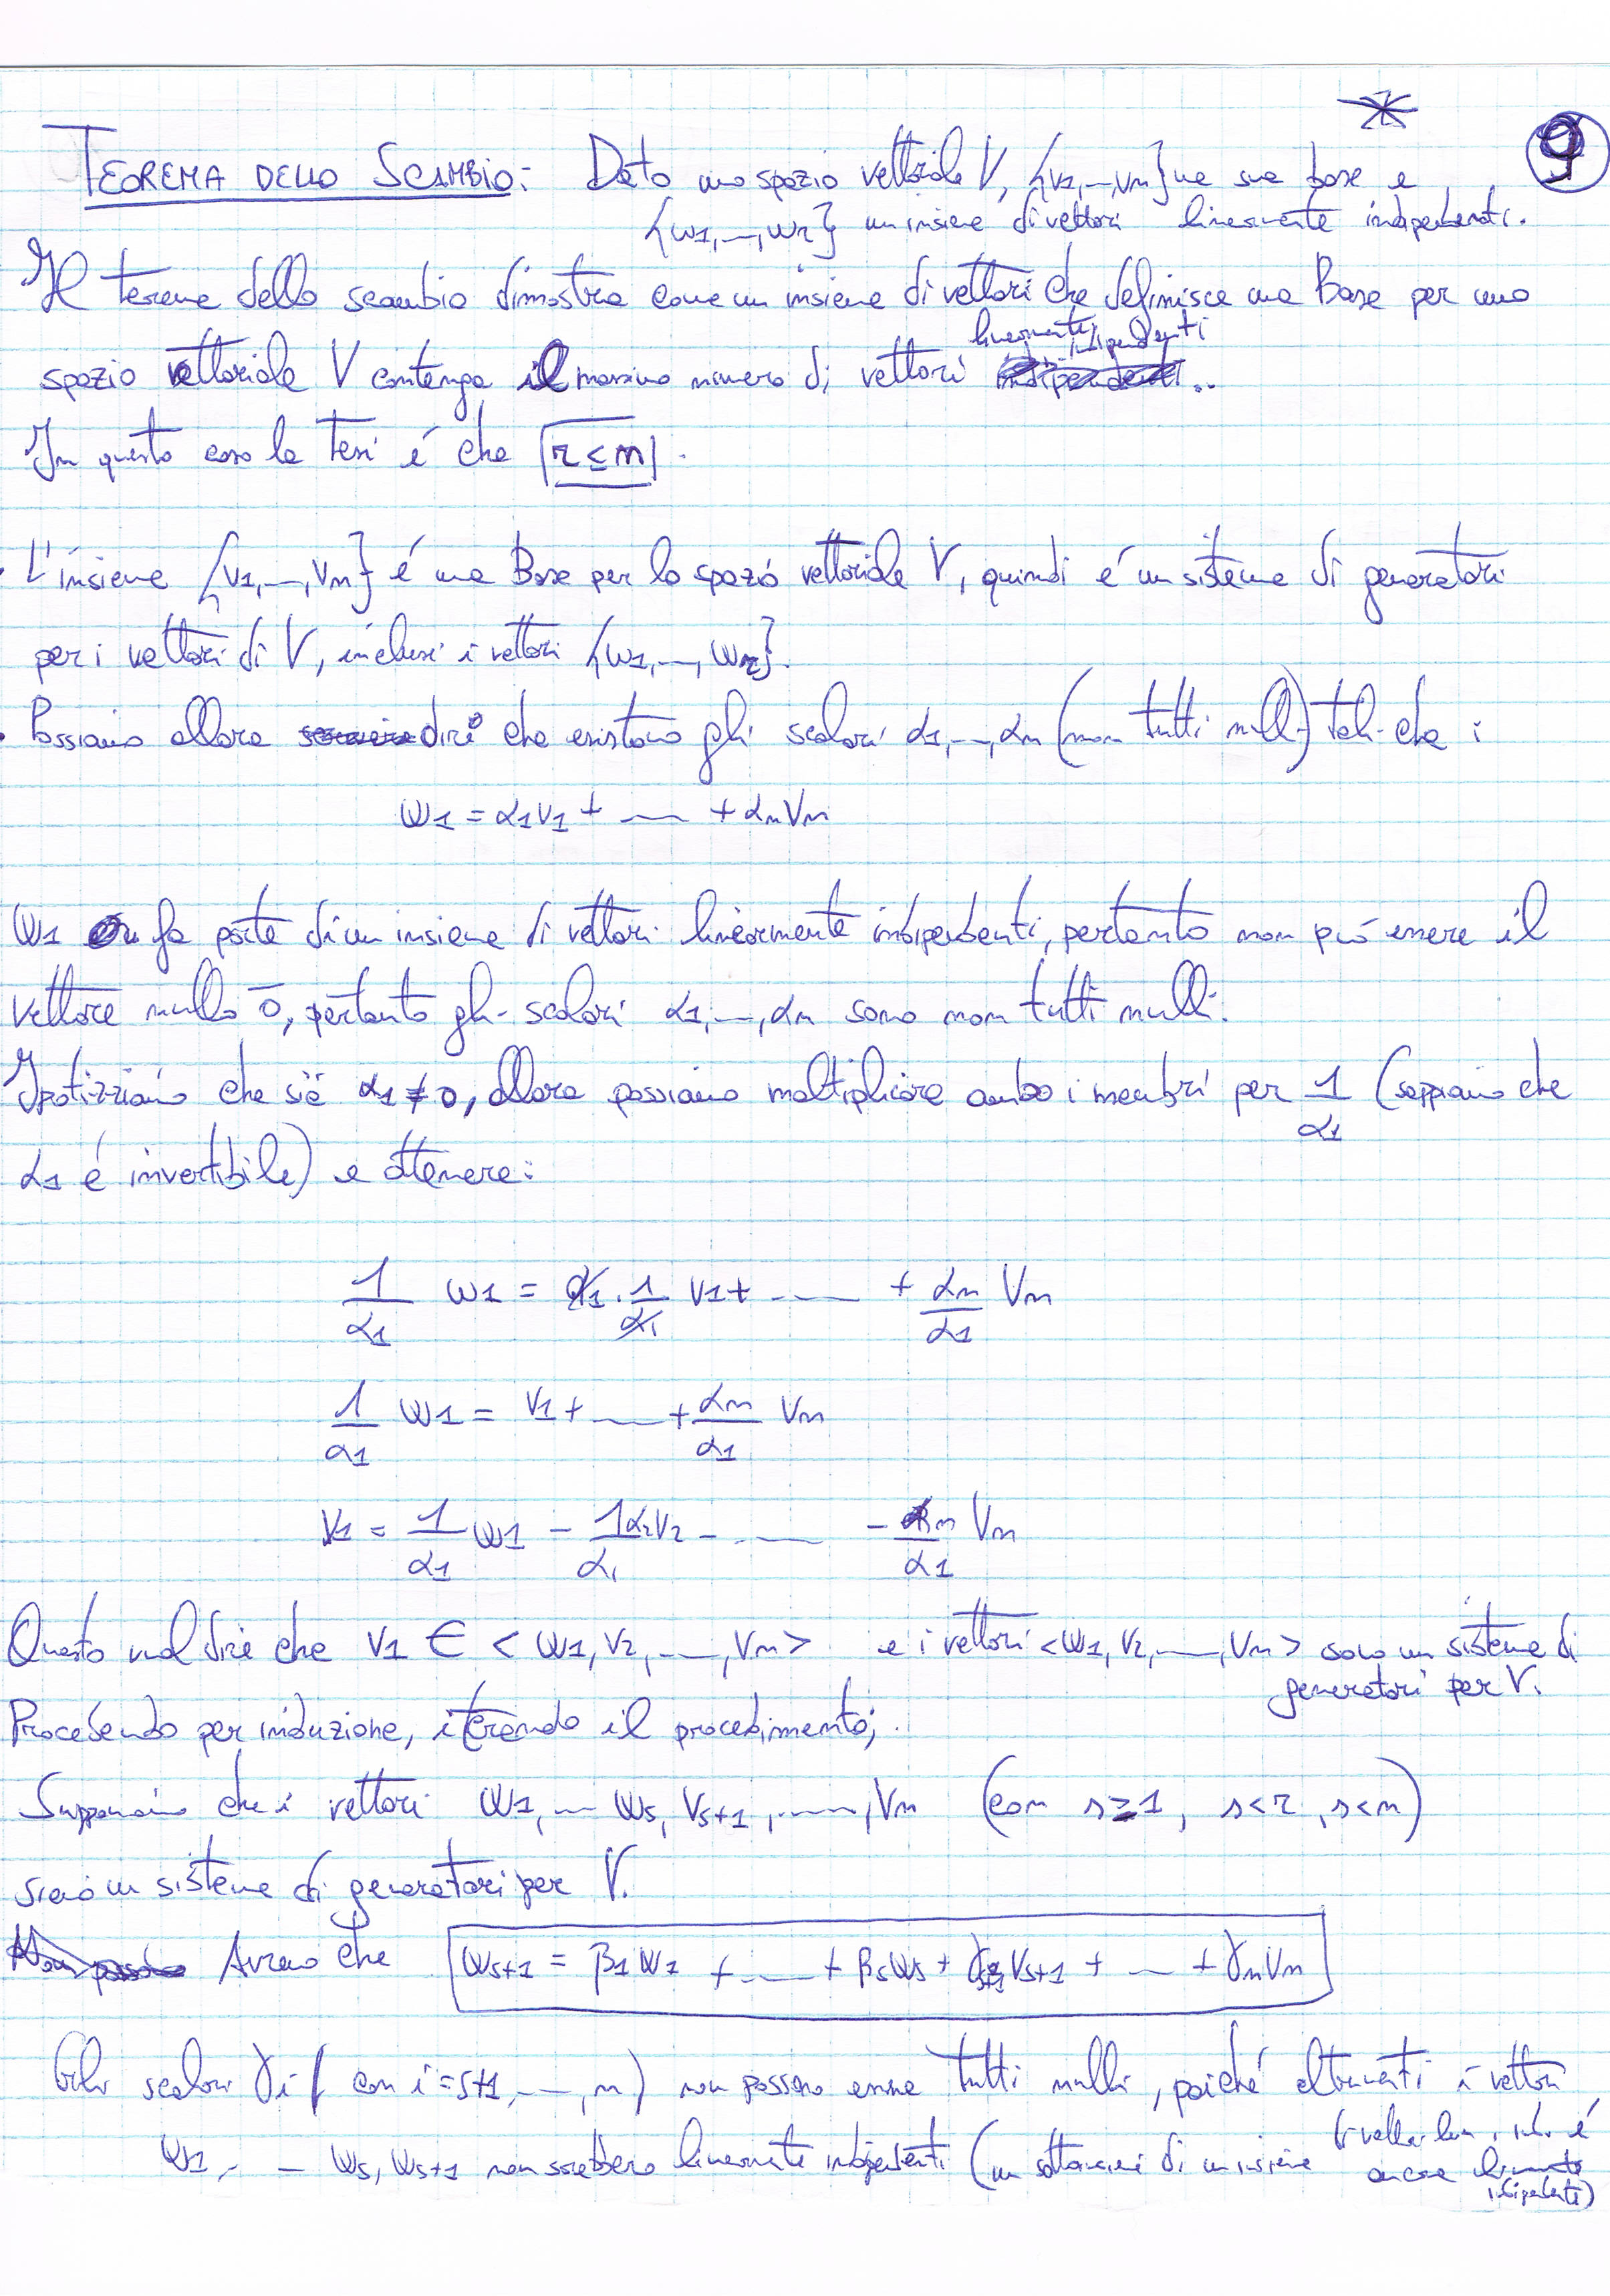 * 9
TEOREMA DELLO SCAMBIO: Dato uno spazio vettoriale V, {v1,...,vn} una sua base e
{w1,...,wr} un insieme di vettori linearmente indipendenti.
Il teorema dello scambio dimostra come un insieme di vettori che definisce una Base per uno
spazio vettoriale V contenga il massimo numero di vettori linearmente indipendenti..
In questo caso la Tesi é che r ≤ n.
• L'insieme {v1,...,vn} é una Base per lo spazio vettoriale V, quindi é un sistema di generatori
per i vettori di V, inclusi i vettori {w1,...,wr}.
• Possiamo allora dire che esistono gli scalari α1,...,αn (non tutti nulli) tali che:
w1 = α1v1 + ... + αnvn
w1 fa parte di un insieme di vettori linearmente indipendenti, pertanto non può essere il
vettore nullo 0̅, pertanto gli scalari α1,...,αn sono non tutti nulli.
Ipotizziamo che sia α1 ≠ 0, allora possiamo moltiplicare ambo i membri per 1/α1 (sappiamo che
α1 é invertibile) e ottenere:
1/α1 w1 = α1 · 1/α1 v1 + ... + αn/α1 vn
1/α1 w1 = v1 + ... + αn/α1 vn
v1 = 1/α1 w1 - 1α2v2/α1 - ... - αn/α1 vn
Questo vuol dire che v1 ∈ <w1,v2,...,vn> e i vettori <w1,v2,...,vn> sono un sistema di
generatori per V.
Procedendo per induzione, iterando il procedimento;
Supponiamo che i vettori w1,... ws, vs+1,...,vn (con s≥1, s<r, s<n)
siano un sistema di generatori per V.
Avremo che ws+1 = β1w1 + ... + βsws + γs+1vs+1 + ... + γnvn
Gli scalari γi (con i=s+1,...,n) non possono essere tutti nulli, poiché altrimenti i vettori
w1,... ws, ws+1 non sarebbero linearmente indipendenti (un sottoinsieme di un insieme di vettori lin. ind. é
ancora linearmente
indipendente)